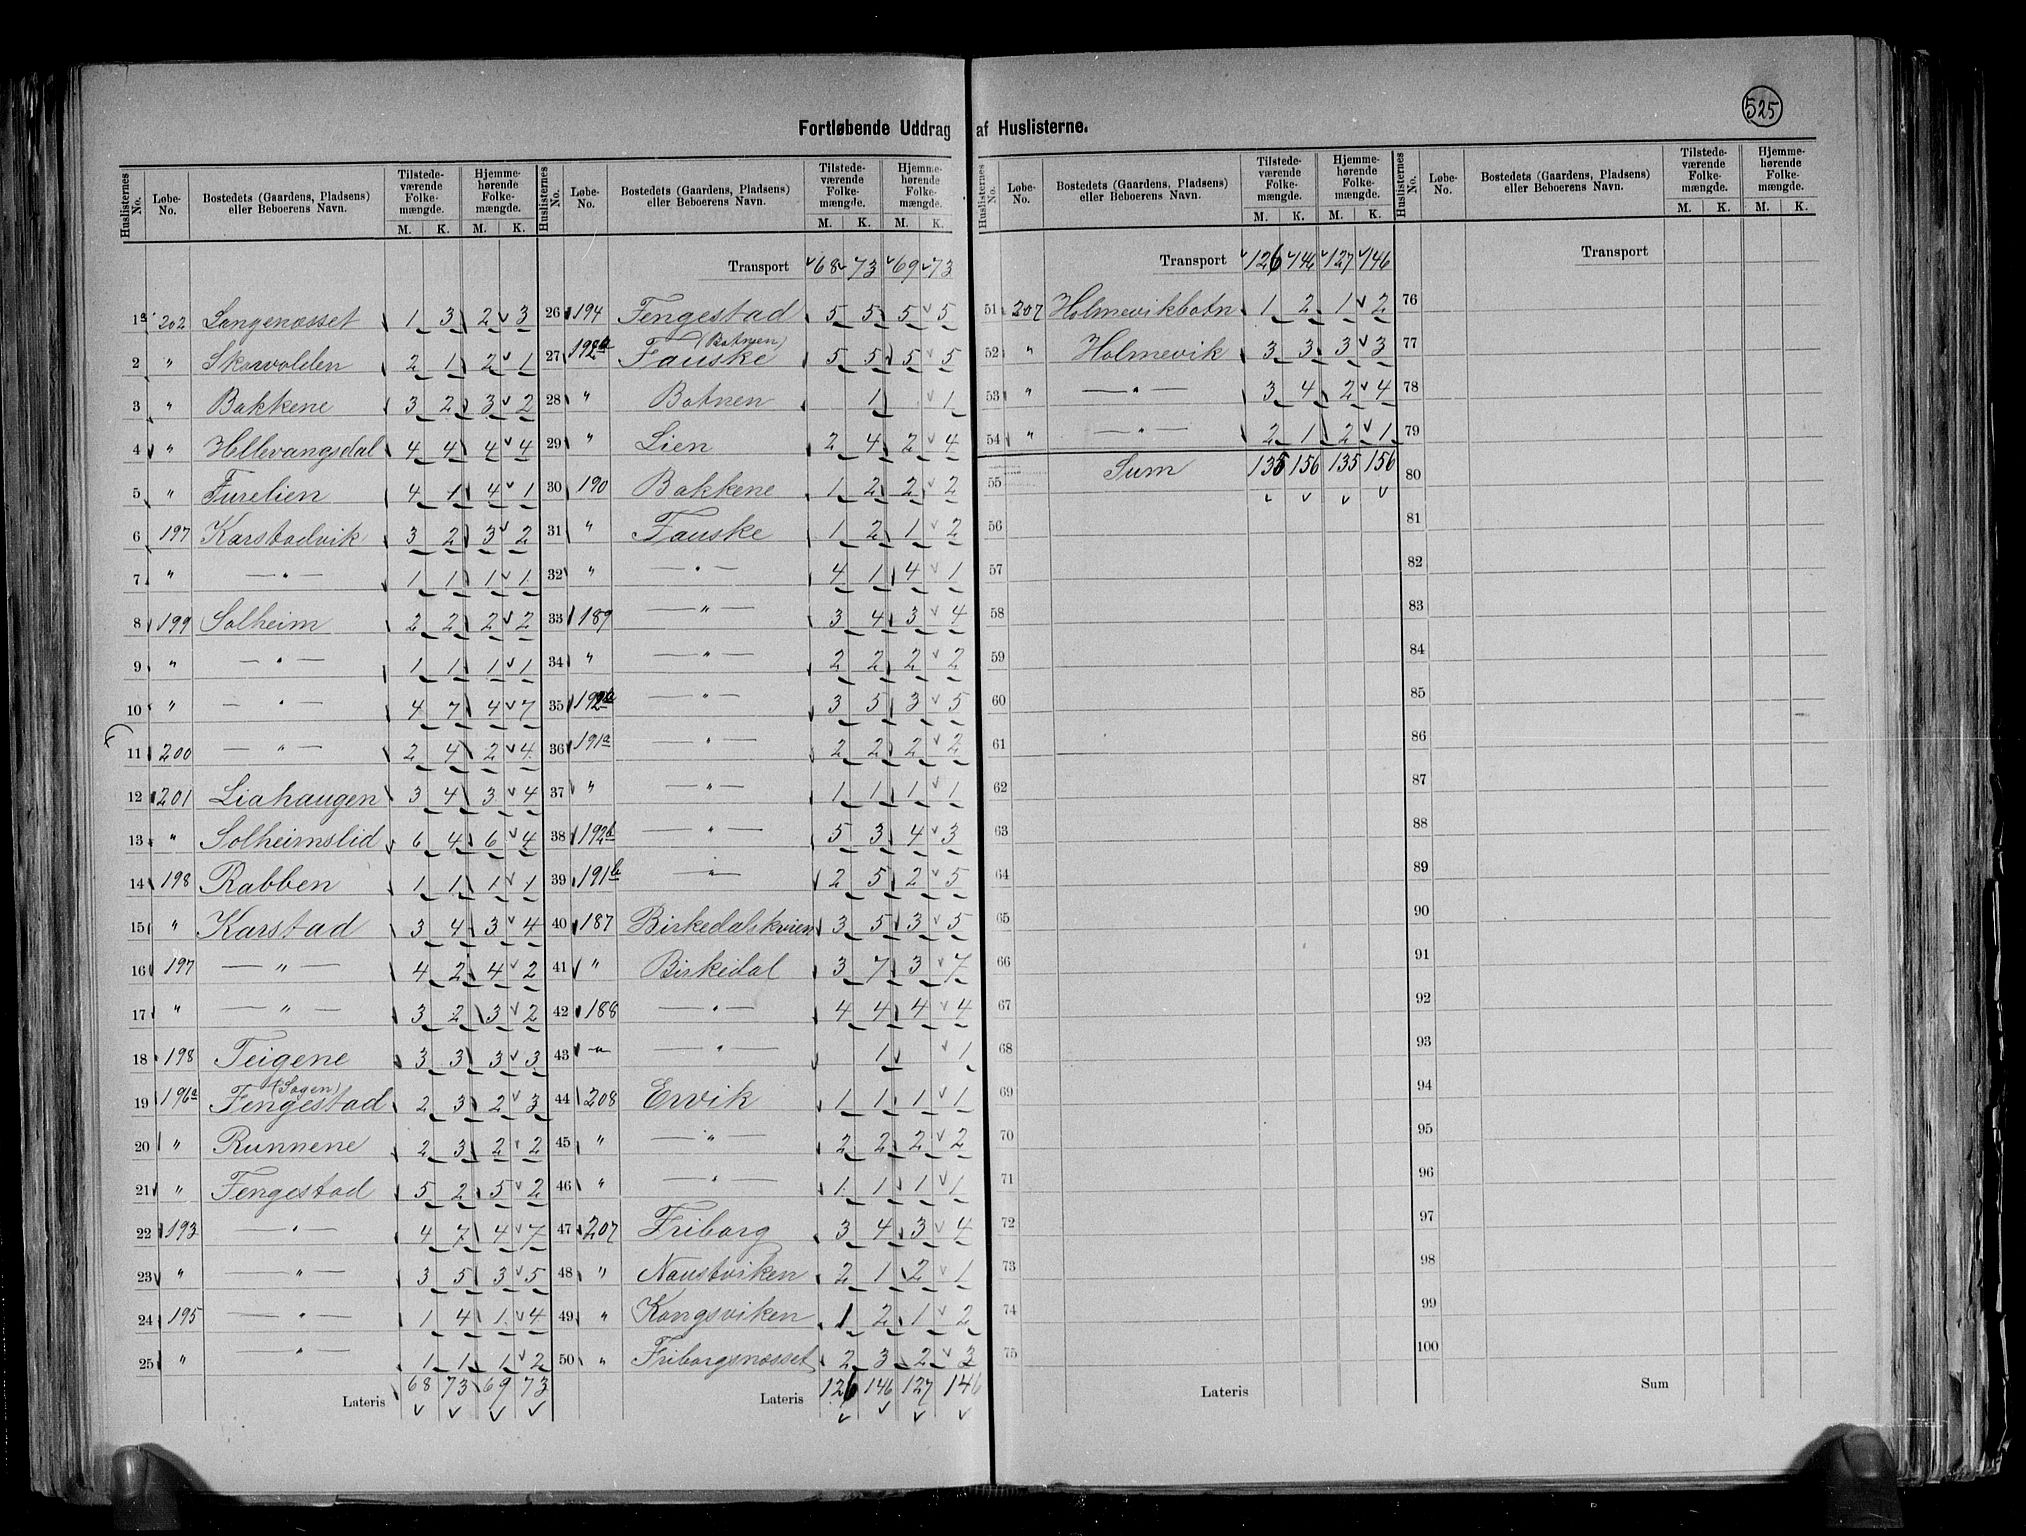 525
Fortløbende Uddrag af Huslisterne.
Huslisternes No. | Løbe-No. | Bostedets (Gaardens, Pladsens) eller Beboerens Navn. | Tilstedeværende Folkemængde. M. K. | Hjemmehørende Folkemængde. M. K.
1 202 Langenæsset 1 3 2 3
2 " Skorvolden 2 1 2 1
3 " Bakkene 3 2 3 2
4 " Hellevangsdal 4 4 4 4
5 " Furelien 4 1 4 1
6 197 Karstadvik 3 2 3 2
7 " — " — 1 1 1 1
8 199 Solheim 2 2 2 2
9 " — " — 1 1 1 1
10 " — " — 4 7 4 7
11 200 — " — 2 4 2 4
12 201 Liahaugen 3 4 3 4
13 " Solheimslid 6 4 6 4
14 198 Rabben 1 1 1 1
15 " Karstad 3 4 3 4
16 197 — " — 4 2 4 2
17 " — " — 3 2 3 2
18 198 Teigene 3 3 3 3
19 196a Fengestad (Sagen) 2 3 2 3
20 " Runnene 2 3 2 2
21 " Fengestad 5 2 5 2
22 193 — " — 4 7 4 7
23 " — " — 3 5 3 5
24 195 — " — 1 4 1 4
25 " — " — 1 1 1 2
Lateris 68 73 69 73
Huslisternes No. | Løbe-No. | Bostedets (Gaardens, Pladsens) eller Beboerens Navn. | Tilstedeværende Folkemængde. M. K. | Hjemmehørende Folkemængde. M. K.
Transport 68 73 69 73
26 194 Fengestad 5 5 5 5
27 192a Fauske (Botnen) 5 5 5 5
28 " Botnen 1 1
29 " Lien 2 4 2 4
30 190 Bakkene 1 2 2 2
31 " Fauske 1 2 1 2
32 " — " — 4 1 4 1
33 189 — " — 3 4 3 4
34 " — " — 2 2 2 2
35 — " — 3 5 3 5
36 191a — " — 2 2 2 2
37 " — " — 1 1 1 1
38 192b — " — 5 3 4 3
39 191b — " — 2 5 2 5
40 187 Birkedalskvien 3 5 3 5
41 " Birkedal 3 7 3 7
42 188 — " — 4 4 4 4
43 — " — — " — 1 1
44 208 Ervik 1 1 1 1
45 " — " — 2 2 2 2
46 " — " — 1 1 1 1
47 207 Friborg 3 4 3 4
48 " Naustviken 2 1 2 1
49 " Kongsviken 1 2 1 2
50 " Friborgsnæsset 2 3 2 3
Lateris 126 146 127 146
Huslisternes No. | Løbe-No. | Bostedets (Gaardens, Pladsens) eller Beboerens Navn. | Tilstedeværende Folkemængde. M. K. | Hjemmehørende Folkemængde. M. K.
Transport 126 146 127 146
51 207 Holmevikbotn 1 2 1 2
52 " Holmevik 3 3 3 3
53 " — " — 3 4 2 4
54 " — " — 2 1 2 1
55 Sum 135 156 135 156
56
57
58
59
60
61
62
63
64
65
66
67
68
69
70
71
72
73
74
75
Lateris
Huslisternes No. | Løbe-No. | Bostedets (Gaardens, Pladsens) eller Beboerens Navn. | Tilstedeværende Folkemængde. M. K. | Hjemmehørende Folkemængde. M. K.
Transport
76
77
78
79
80
81
82
83
84
85
86
87
88
89
90
91
92
93
94
95
96
97
98
99
100
Sum